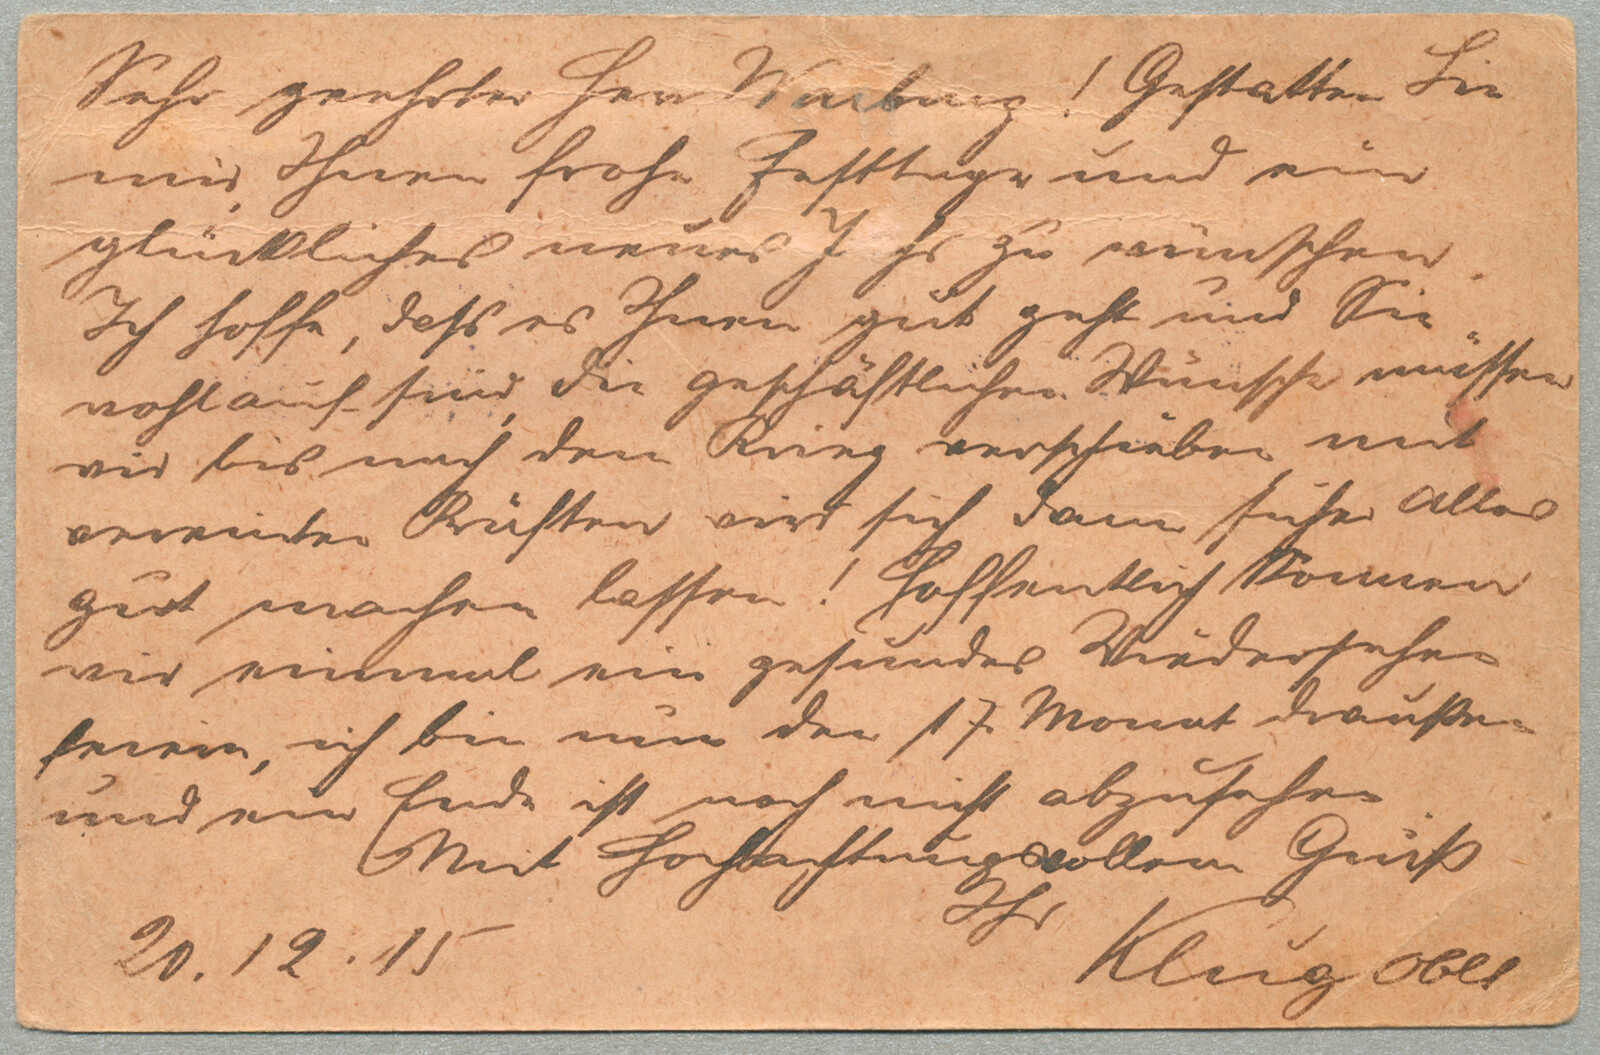 Sehr geehrter Herr Warburg! Gestatten Sie
mir, Ihnen frohe Festtage und ein
glückliches neues J hr zu wünschen.
Ich hoffe, dass es Ihnen gut geht und Sie
wohlauf sind, die geschäftlichen Wünsche müssen
wir bis nach dem Krieg verschieben, mit
vereinten Kräften wird sich dann sicher alles
gut machen lassen! Hoffentlich können
wir einmal ein gesundes Wiedersehen
feiern, ich bin nun den 17. Monat draußen
und ein Ende ist noch nicht abzusehen.
Mit hochachtungsvollem Gruß
Ihr
Klug Oblt
20.12.15